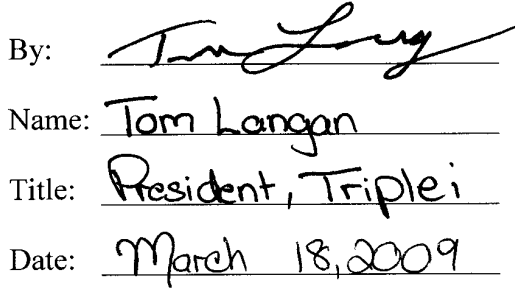 By: Tom Lang
Name: Tom Langan
Title: President, Triplei
Date: March 18, 2009